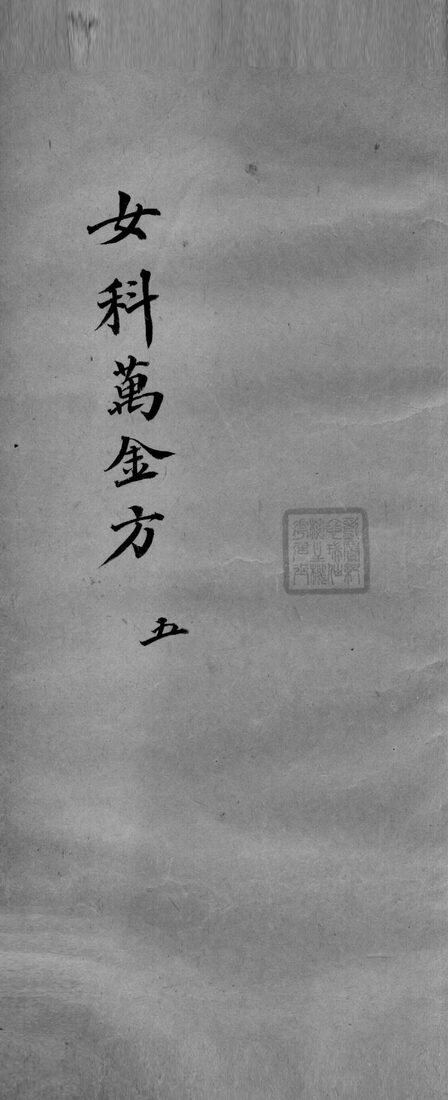 女科萬金方
五